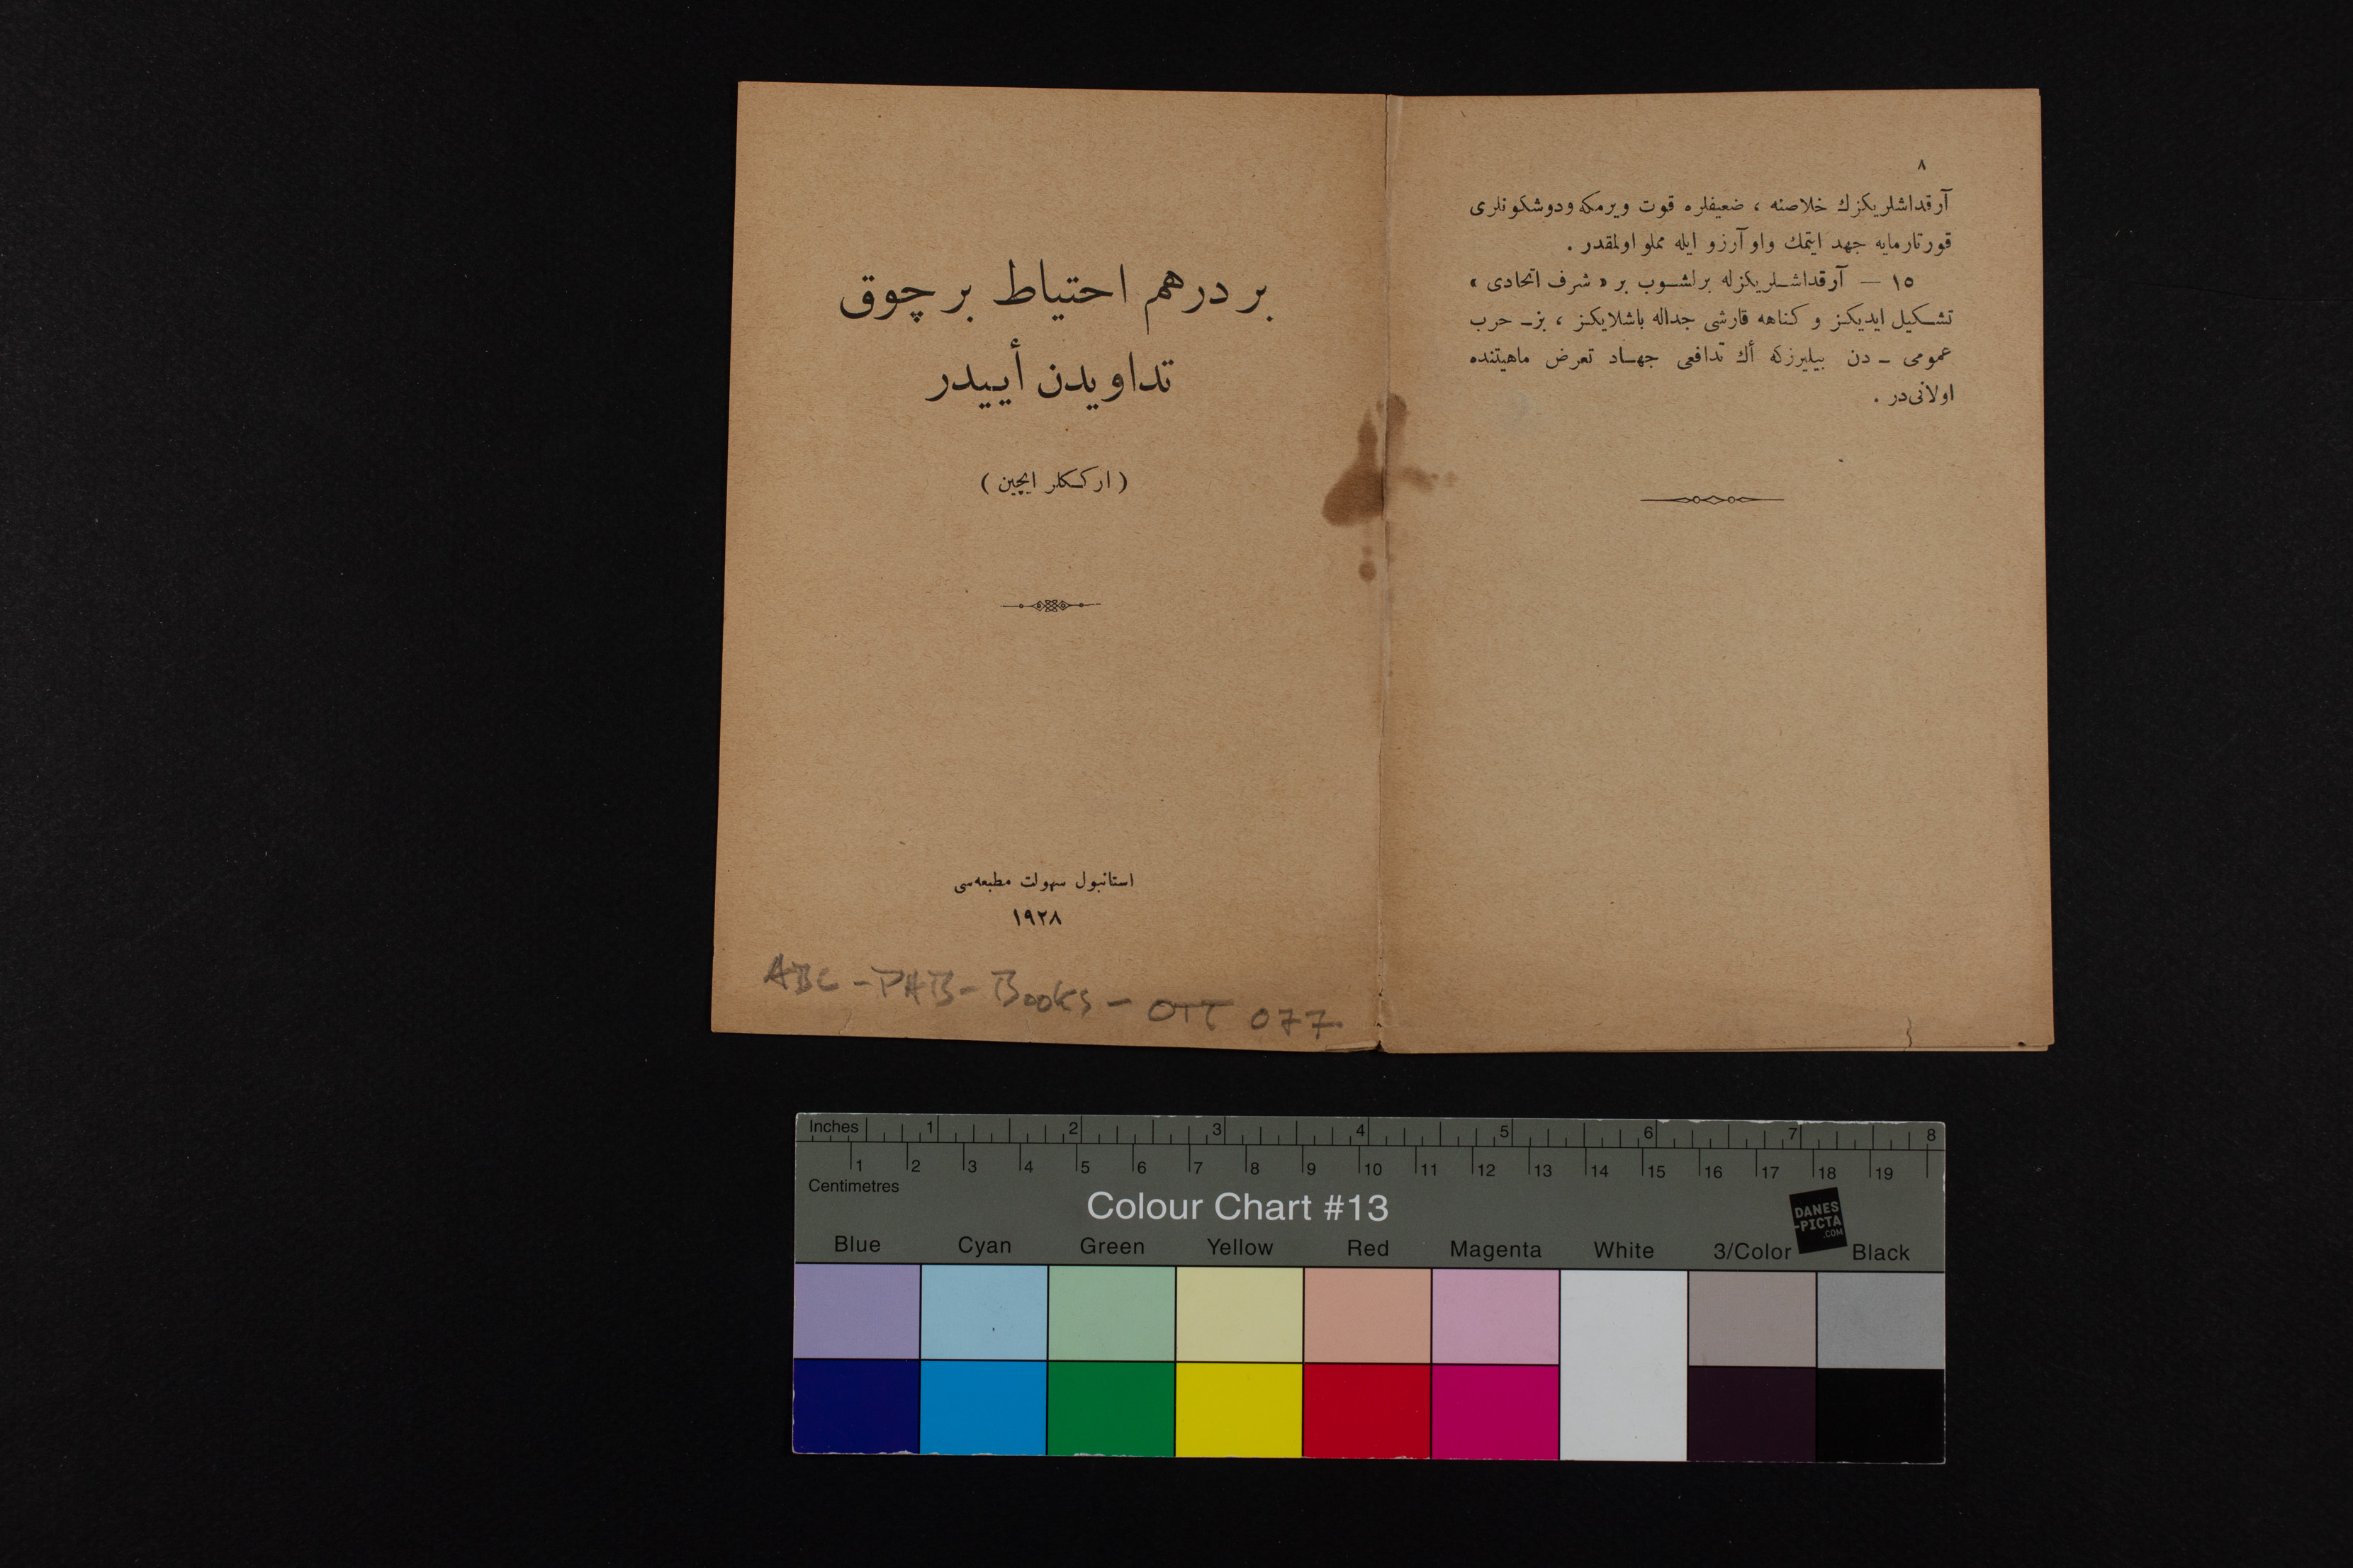 ٨
آرقداشلریكزك خلاصنه ، ضعیفلره قوت ویرمكه ودوشكونلری
قورتارمایه جهد ایتمك واو آرزو ایله مملو اولمقدر .
١٥ — آرقداشلریكزله برلشوب بر « شرف اتحادی »
تشكیل ایدیكز و كناهه قارشی جداله باشلایكز ، بز ـ حرب
عمومی ـ دن بیلیرزكه أك تدافعی جهاد تعرض ماهیتنده
اولانی‌در .
بر درهم احتیاط بر چوق
تداویدن أییدر
( ارككلر ایچین )
استانبول سهولت مطبعه‌سی
١٩٢٨
ABC - PAB - Books - OTT 077.
Inches 1 2 3 4 5 6 7 8
1 2 3 4 5 6 7 8 9 10 11 12 13 14 15 16 17 18 19
Centimetres
Colour Chart #13
DANES
-PICTA
.COM
Blue Cyan Green Yellow Red Magenta White 3/Color Black